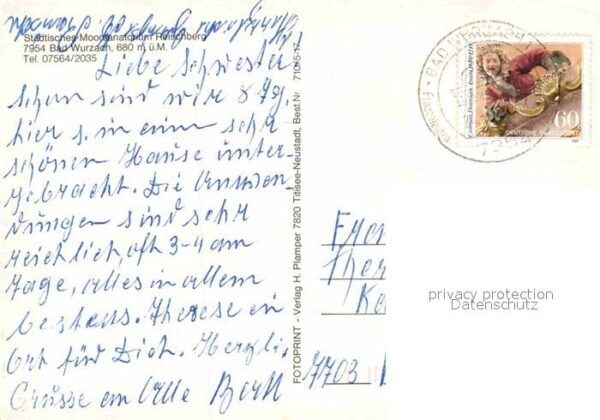 Städtisches Moorsanatorium Reischberg
7954 Bad Wurzach, 680 m ü.M.
Tel. 07564/2035
Liebe Schwester
schon sind wir 8 Tg.
hier u. in einem sehr
schönen Hause unter-
gebracht. Die Anwen-
dungen sind sehr
reichlich, oft 3-4 am
Tage, alles in allem
bestens. Therese ein
Ort für Dich. Herzli.
Grüsse an Alle
FOTOPRINT - Verlag H. Plamper 7820 Titisee-Neustadt, Best.Nr. 710/5-17
BAD WURZACH 1
7954
60
DEUTSCHE BUNDESPOST
Frau
Ther
7703
privacy protection
Datenschutz